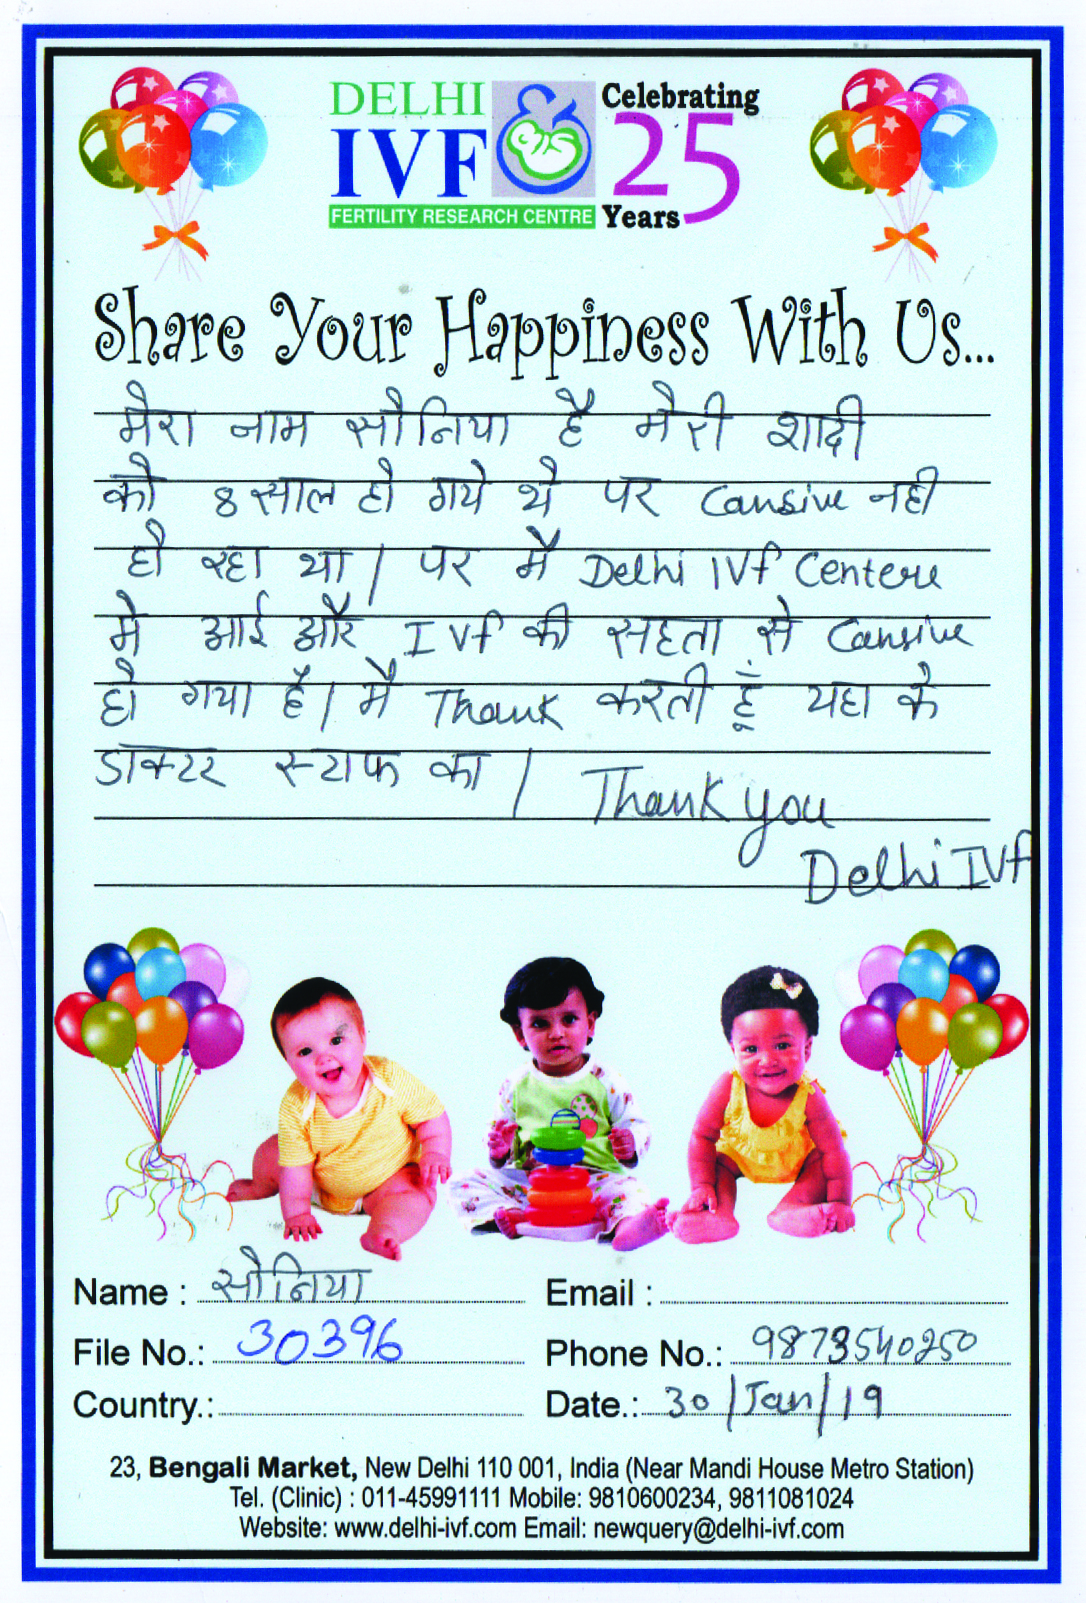 DELHI
IVF
FERTILITY RESEARCH CENTRE
Celebrating
25
Years
Share Your Happiness With Us...
मेरा नाम सोनिया है मेरी शादी
को 8 साल हो गये थे पर Cansive नही
हो रहा था / पर मैं Delhi IVf Centere
मे आई और IVf की सहता से Cansive
हो गया है / मै Thank करती हूं यहा के
डाक्टर स्टाफ का / Thank you
Delhi IVf
Name : सोनिया
Email :
File No.: 30396
Phone No.: 9873540250
Country.:
Date.: 30/Jan/19
23, Bengali Market, New Delhi 110 001, India (Near Mandi House Metro Station)
Tel. (Clinic) : 011-45991111 Mobile: 9810600234, 9811081024
Website: www.delhi-ivf.com Email: newquery@delhi-ivf.com